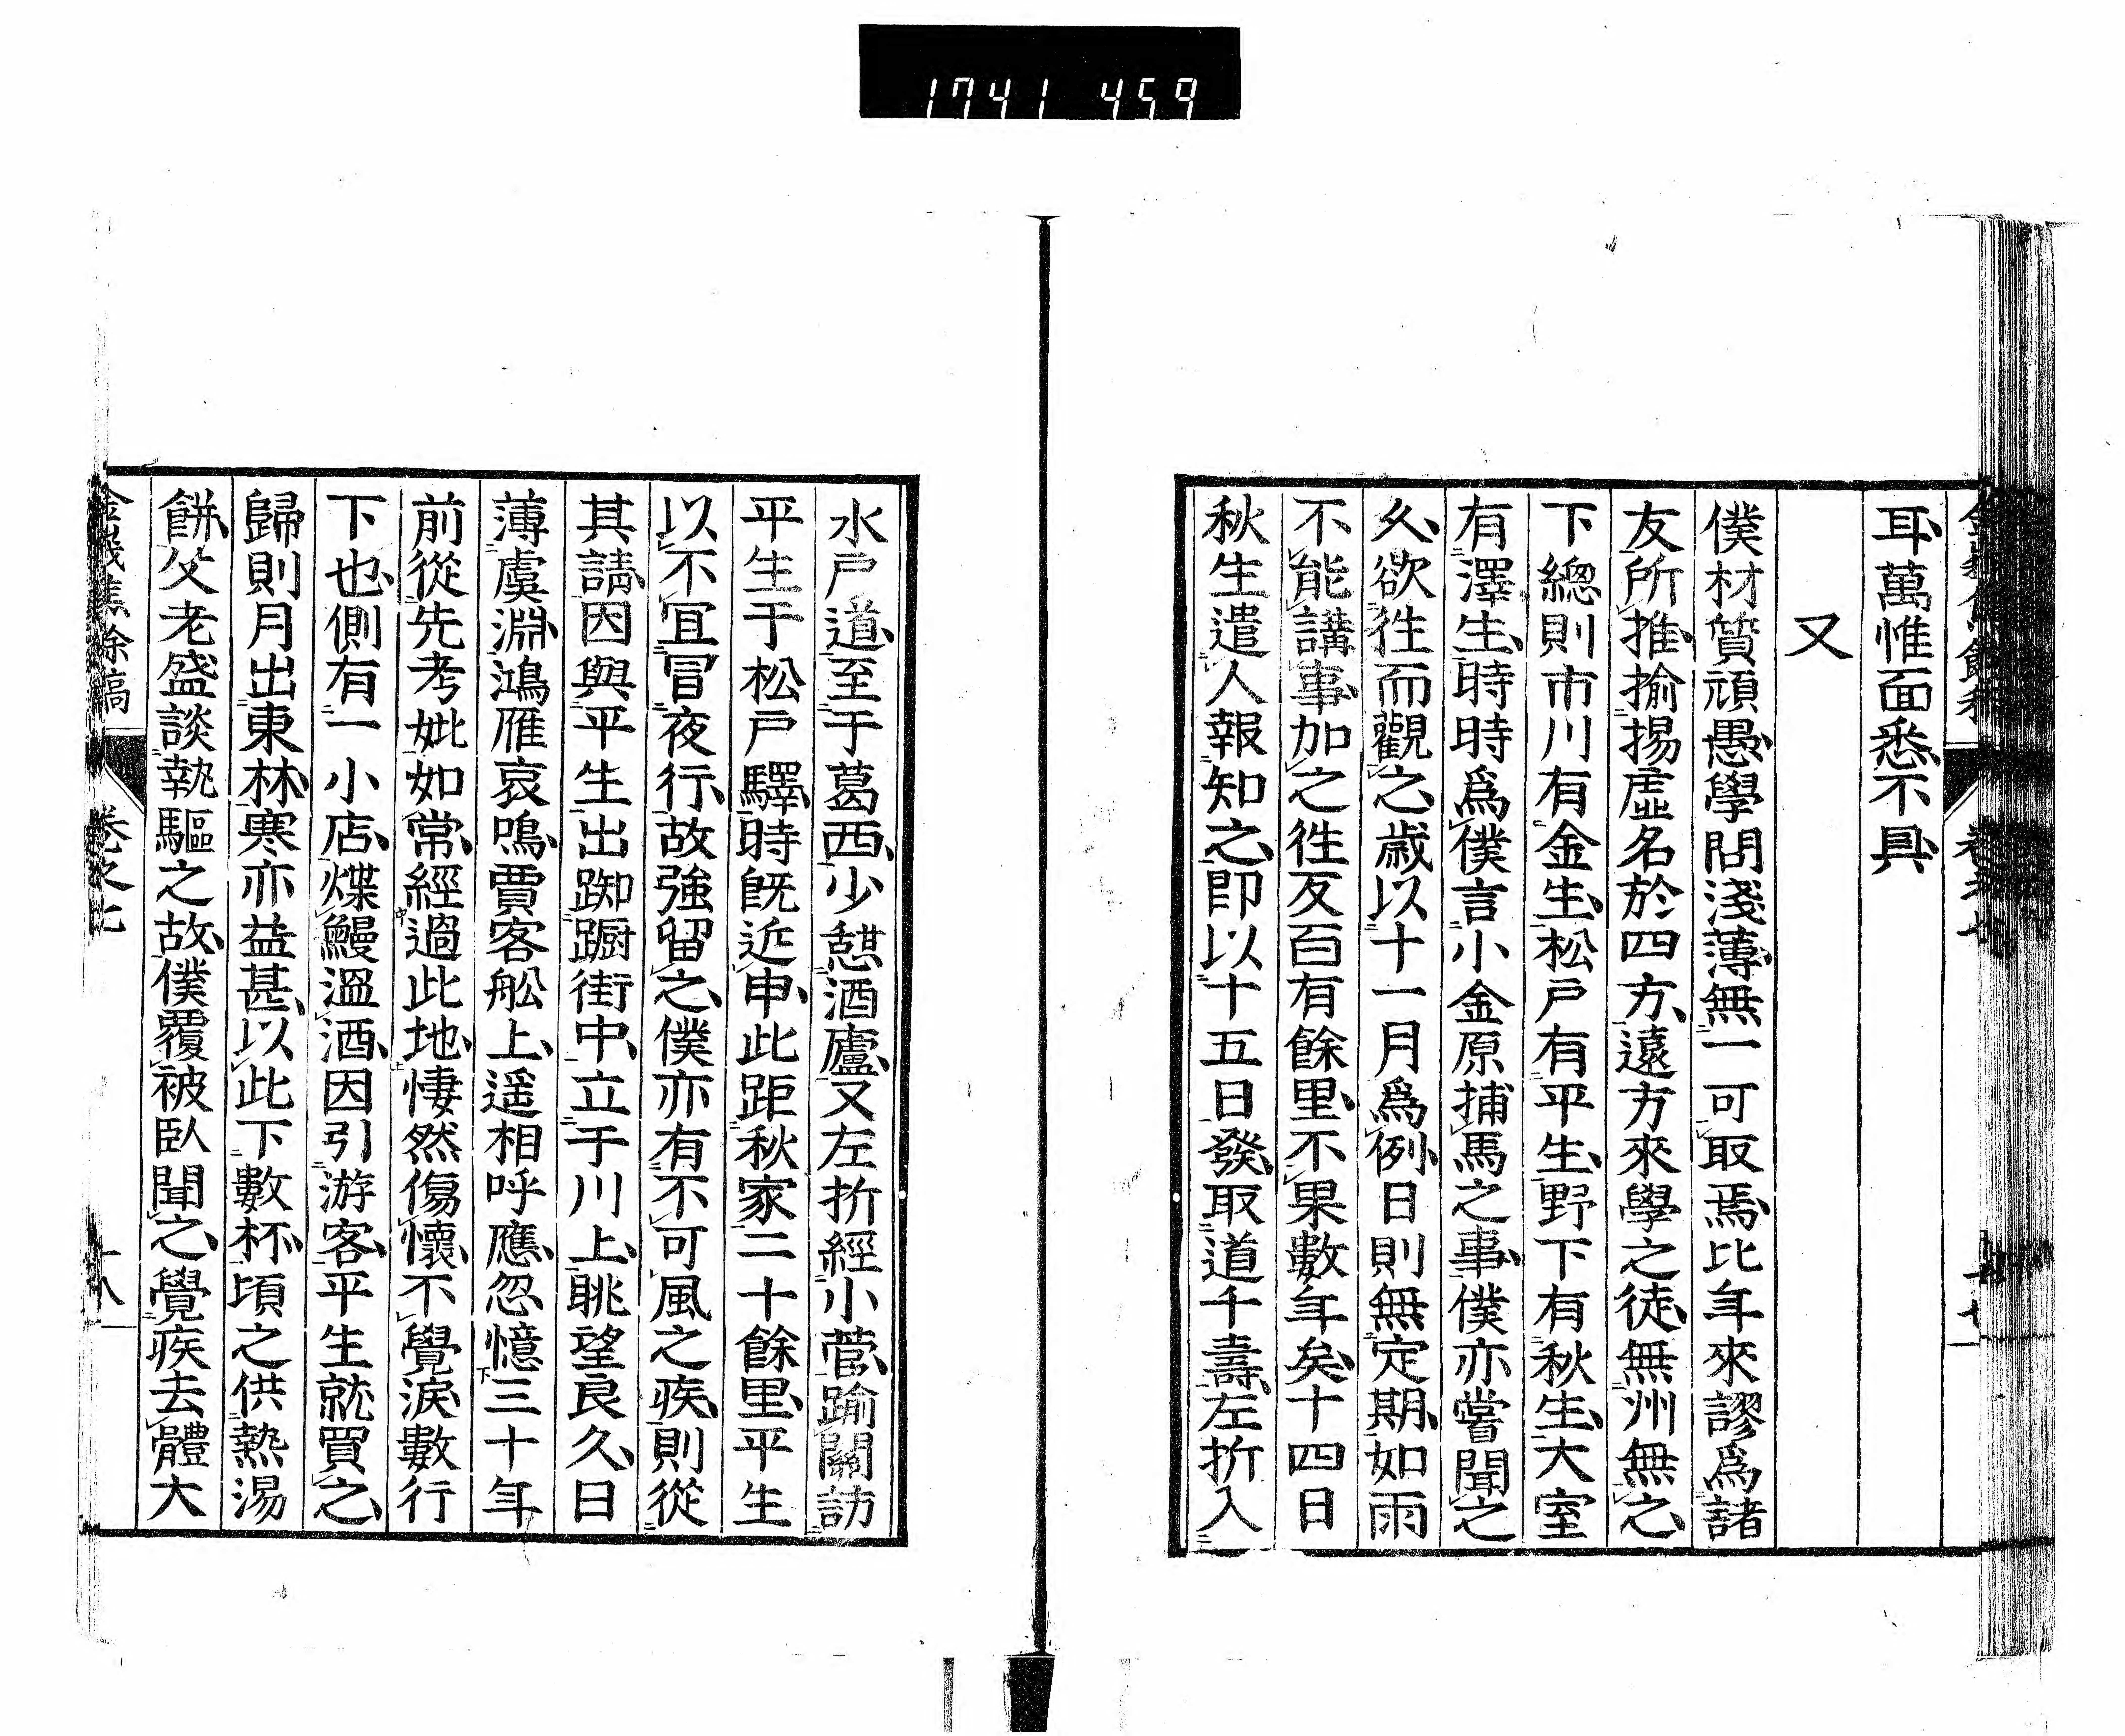 1741 459
耳、萬惟面悉、不具、
又
僕材質頑愚、學問淺薄、無一可取焉、比年來謬爲諸
友所推、揄揚虛名於四方、遠方來學之徒、無州無之、
下總則市川有金生、松戶有平生、野下有秋生、大室
有澤生、時時爲僕言小金原捕馬之事、僕亦嘗聞之
久、欲徃而觀之、歲以十一月爲例、日則無定期、如雨
不能講事、加之徃反百有餘里、不果數年矣、十四日
秋生遣人報知之、即以十五日發、取道千壽、左折入
水戶道、至于葛西、少憇酒廬、又左折經小菅、踰關訪
平生于松戶驛、時旣近申、此距秋家二十餘里、平生
以不宜冒夜行、故強留之、僕亦有不可風之疾、則從
其請、因與平生出踟躕街中、立于川上、眺望良久、日
薄虞淵、鴻雁哀鳴、賈客舩上、遥相呼應、忽憶三十年
前從先考妣如常、經過此地、悽然傷懷、不覺淚數行
下也、側有一小店、煠鰻溫酒、因引游客、平生就買之、
歸則月出東林、寒亦益甚、以此下數杯、頃之供熱湯
餅、父老盛談執驅之故、僕覆被臥聞之、覺疾去體大
金峩焦餘稿 卷之七 十八